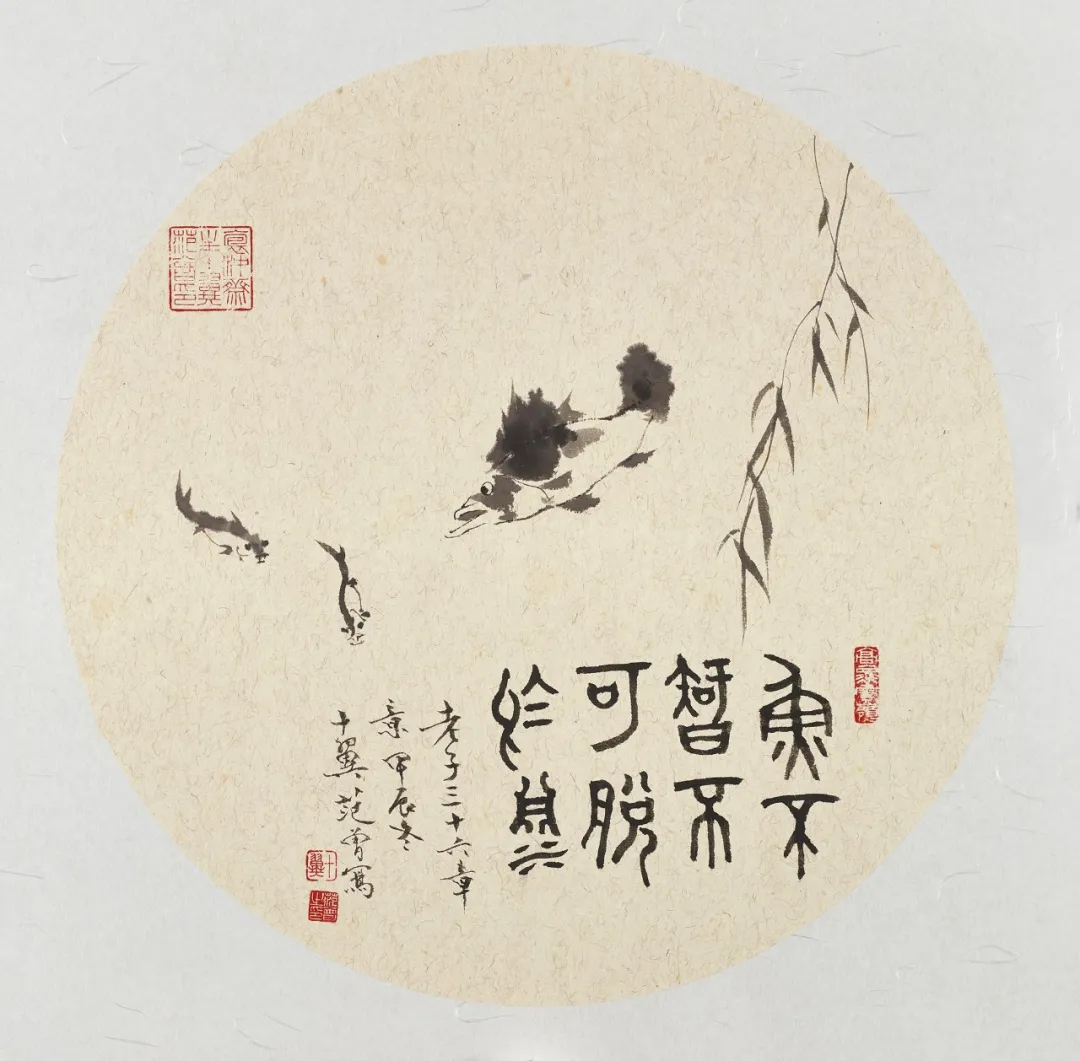 魚不
智不
可脫
於淵
老子三十六章
意 甲辰冬
十翼范曾寫
十翼